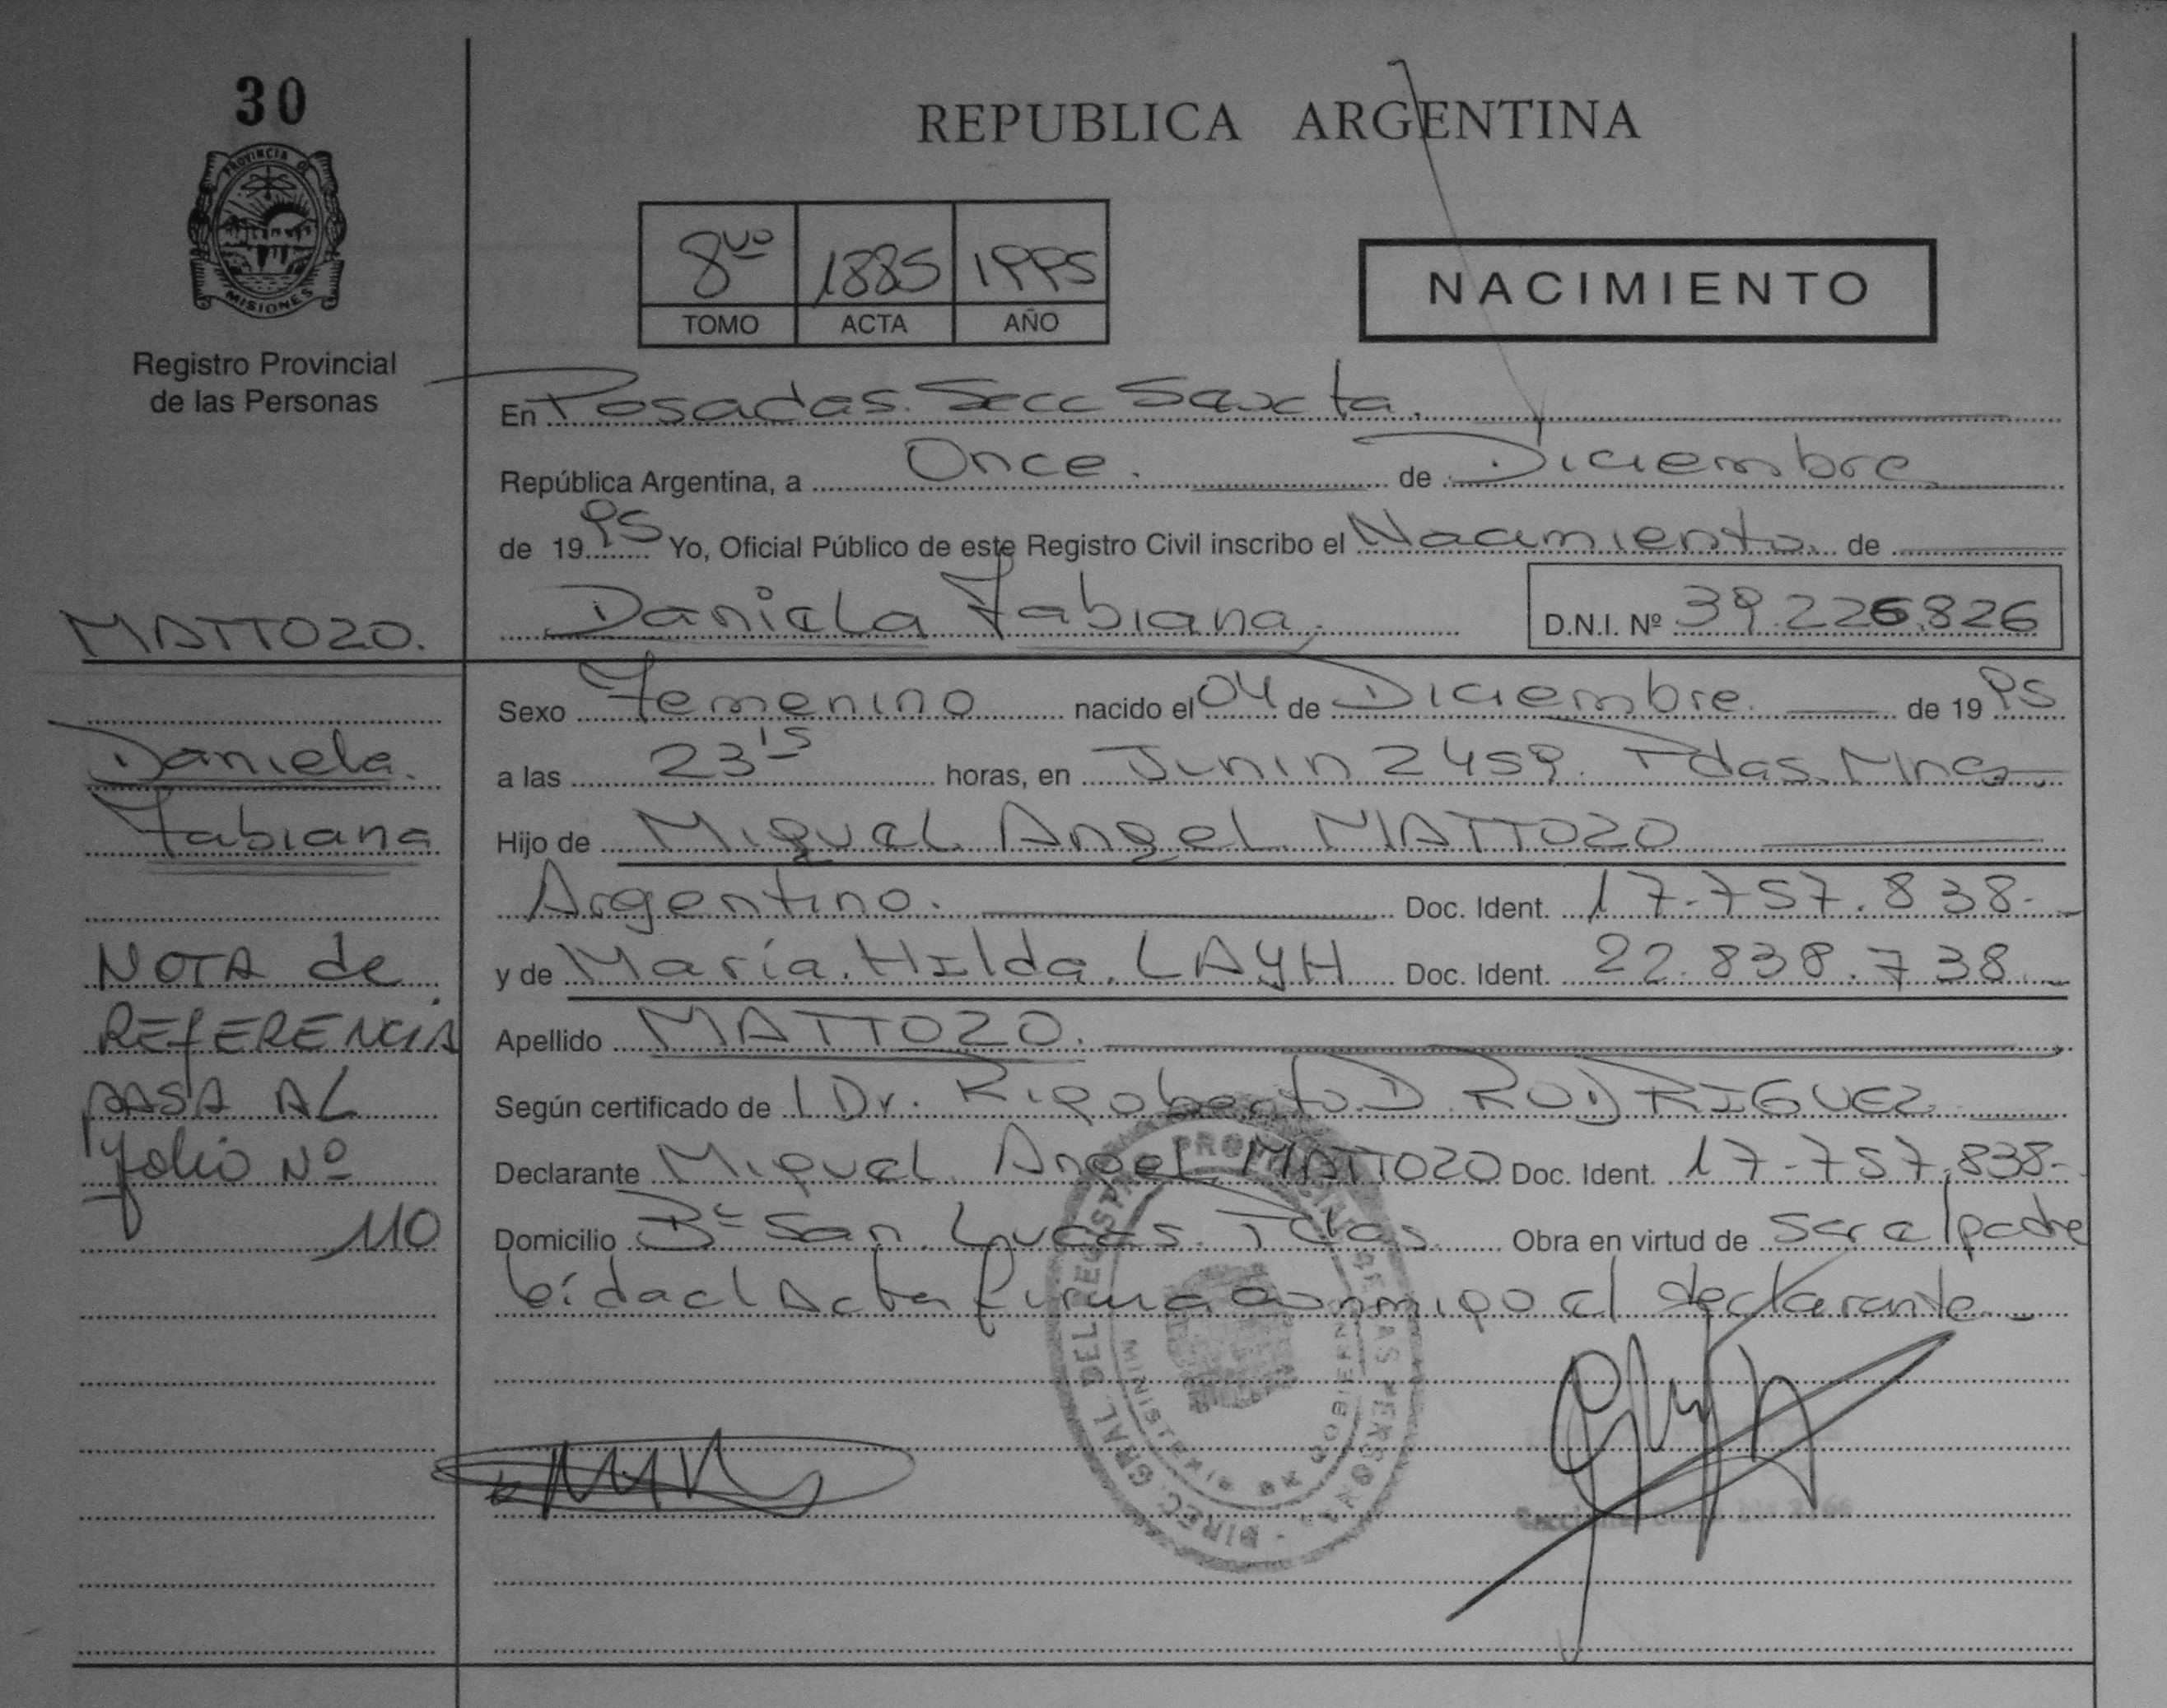 30
PROVINCIA DE
MISIONES
Registro Provincial
de las Personas
REPUBLICA ARGENTINA
8vo 1885 1995
TOMO ACTA AÑO
NACIMIENTO
En Posadas. Secc Sexta.
República Argentina, a Once. de Diciembre
de 1995 Yo, Oficial Público de este Registro Civil inscribo el Nacimiento de
Daniela Fabiana. D.N.I. Nº 39.226.826
MATTOZO.
Daniela.
Fabiana
NOTA de
REFERENCIA
PASA AL
folio Nº
110
Sexo Femenino nacido el 04 de Diciembre. de 1995
a las 23 15 horas, en Junin 2459. Pdas. Mnes
Hijo de Miguel Angel MATTOZO
Argentino. Doc. Ident. 17.757.838-
y de María Hilda LAYH Doc. Ident. 22.838.738
Apellido MATTOZO.
Según certificado de l Dr. Rigoberto D RODRIGUEZ
Declarante Miguel Angel MATTOZO Doc. Ident. 17-757.838-
Domicilio Bº San Lucas Pdas Obra en virtud de ser el padre
Leída el Acta firma conmigo el declarante
DIREC. GRAL. DEL REGISTRO PROVINCIAL DE LAS PERSONAS
MINISTERIO DE GOBIERNO